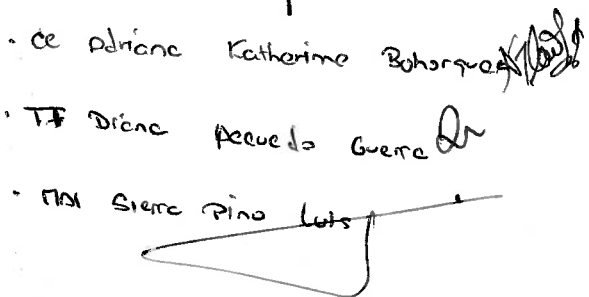 · CE Adriana Katherine Bohorquez
· TF Diana Acevedo Guerra
· MDN Sierra Pino Luis